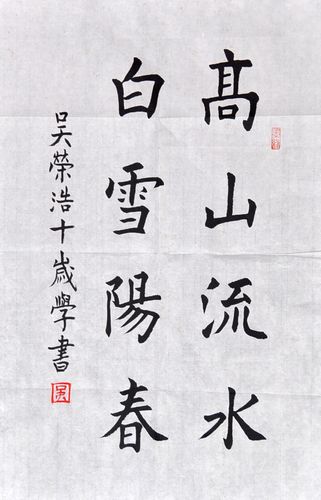 髙山流水
白雪陽春
吴榮浩十歲學書